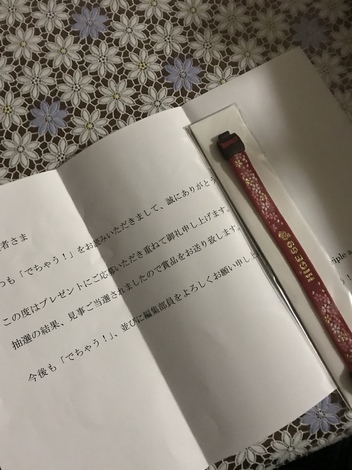 者さま
つも「でちゃう！」をお読みいただきまして、誠にありがとう
この度はプレゼントにご応募いただき重ねて御礼申し上げます。
抽選の結果、見事ご当選されましたので賞品をお送り致します。
今後も「でちゃう！」、並びに編集部員をよろしくお願い申し上
HIGE59